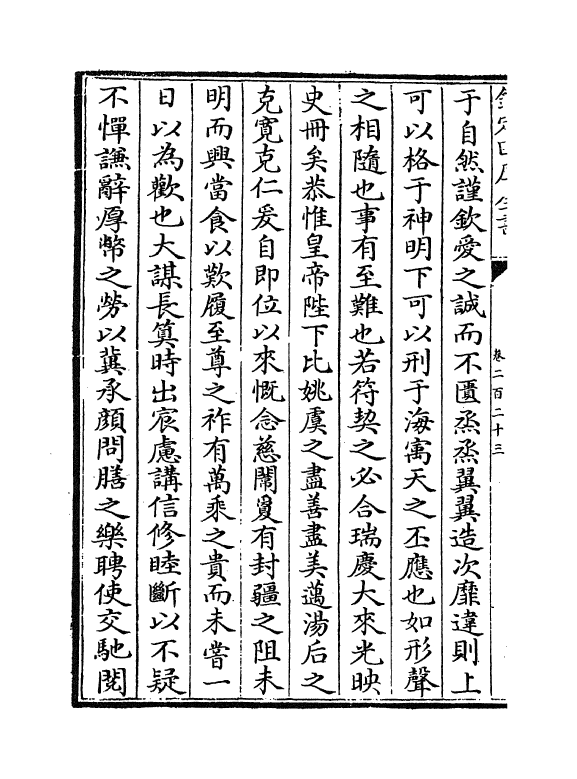 欽定四庫全書
卷二百二十三
于自然謹欽愛之誠而不匱烝烝翼翼造次靡違則上
可以格于神明下可以刑于海寓天之丕應也如形聲
之相隨也事有至難也若符契之必合瑞慶大來光映
史冊矣恭惟皇帝陛下比姚虞之盡善盡美邁湯后之
克寛克仁爰自即位以來慨念慈闈夐有封疆之阻未
明而興當食以歎履至尊之祚有萬乘之貴而未嘗一
日以為歡也大謀長筭時出宸慮講信修睦斷以不疑
不憚謙辭厚幣之勞以冀承顔問膳之樂聘使交馳閱